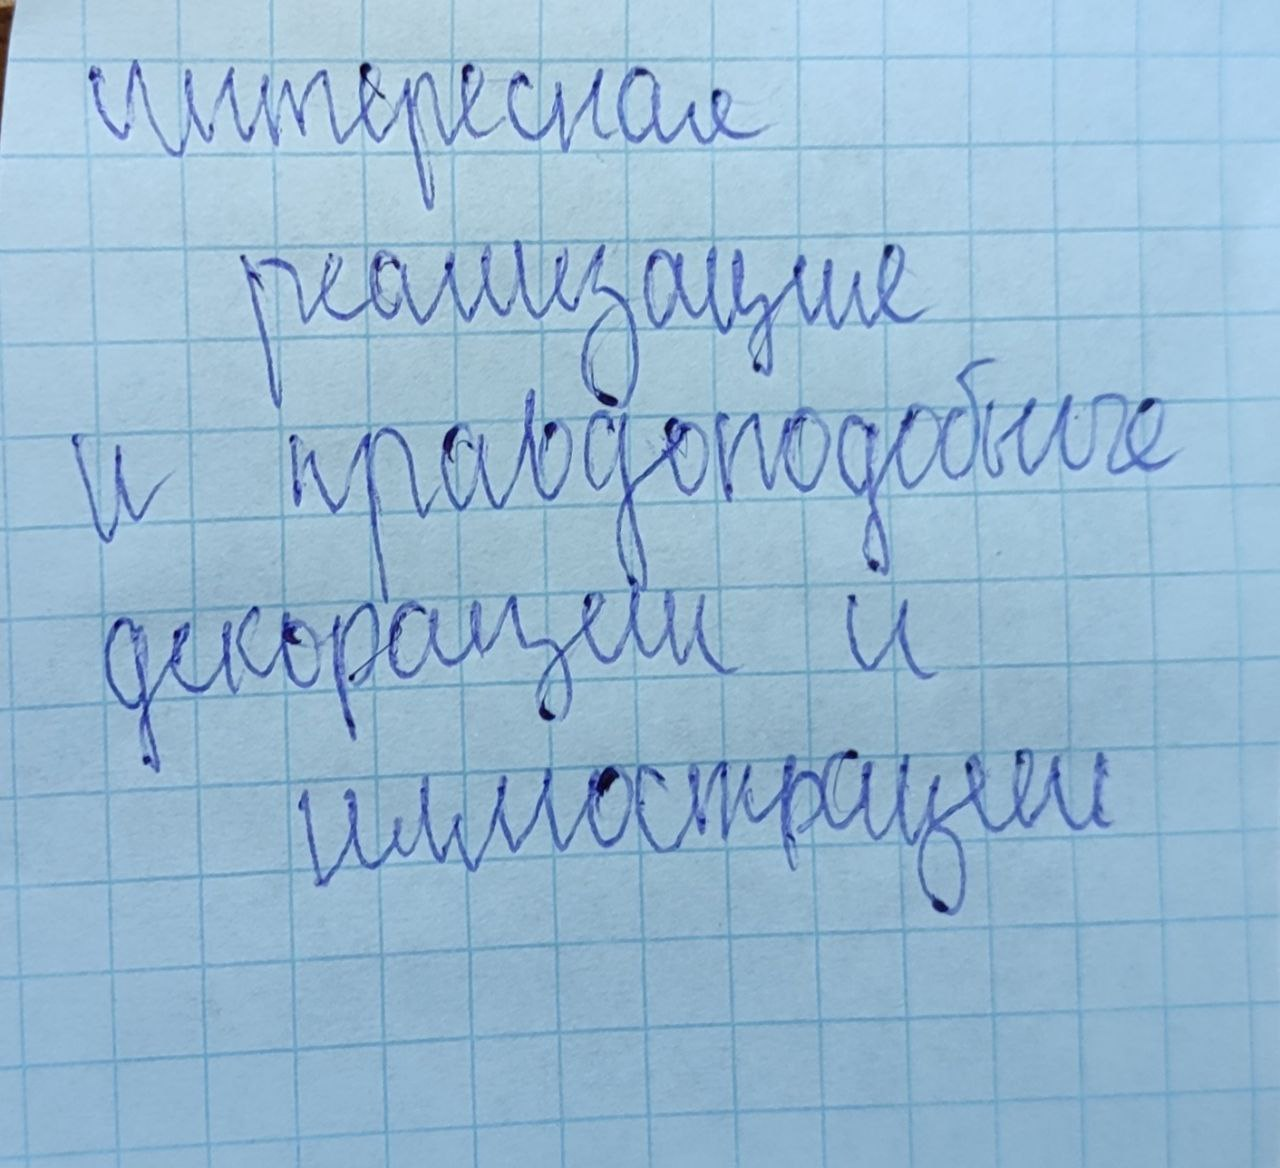 интересная
реализация
и правдоподобные
декорации и
иллюстрации